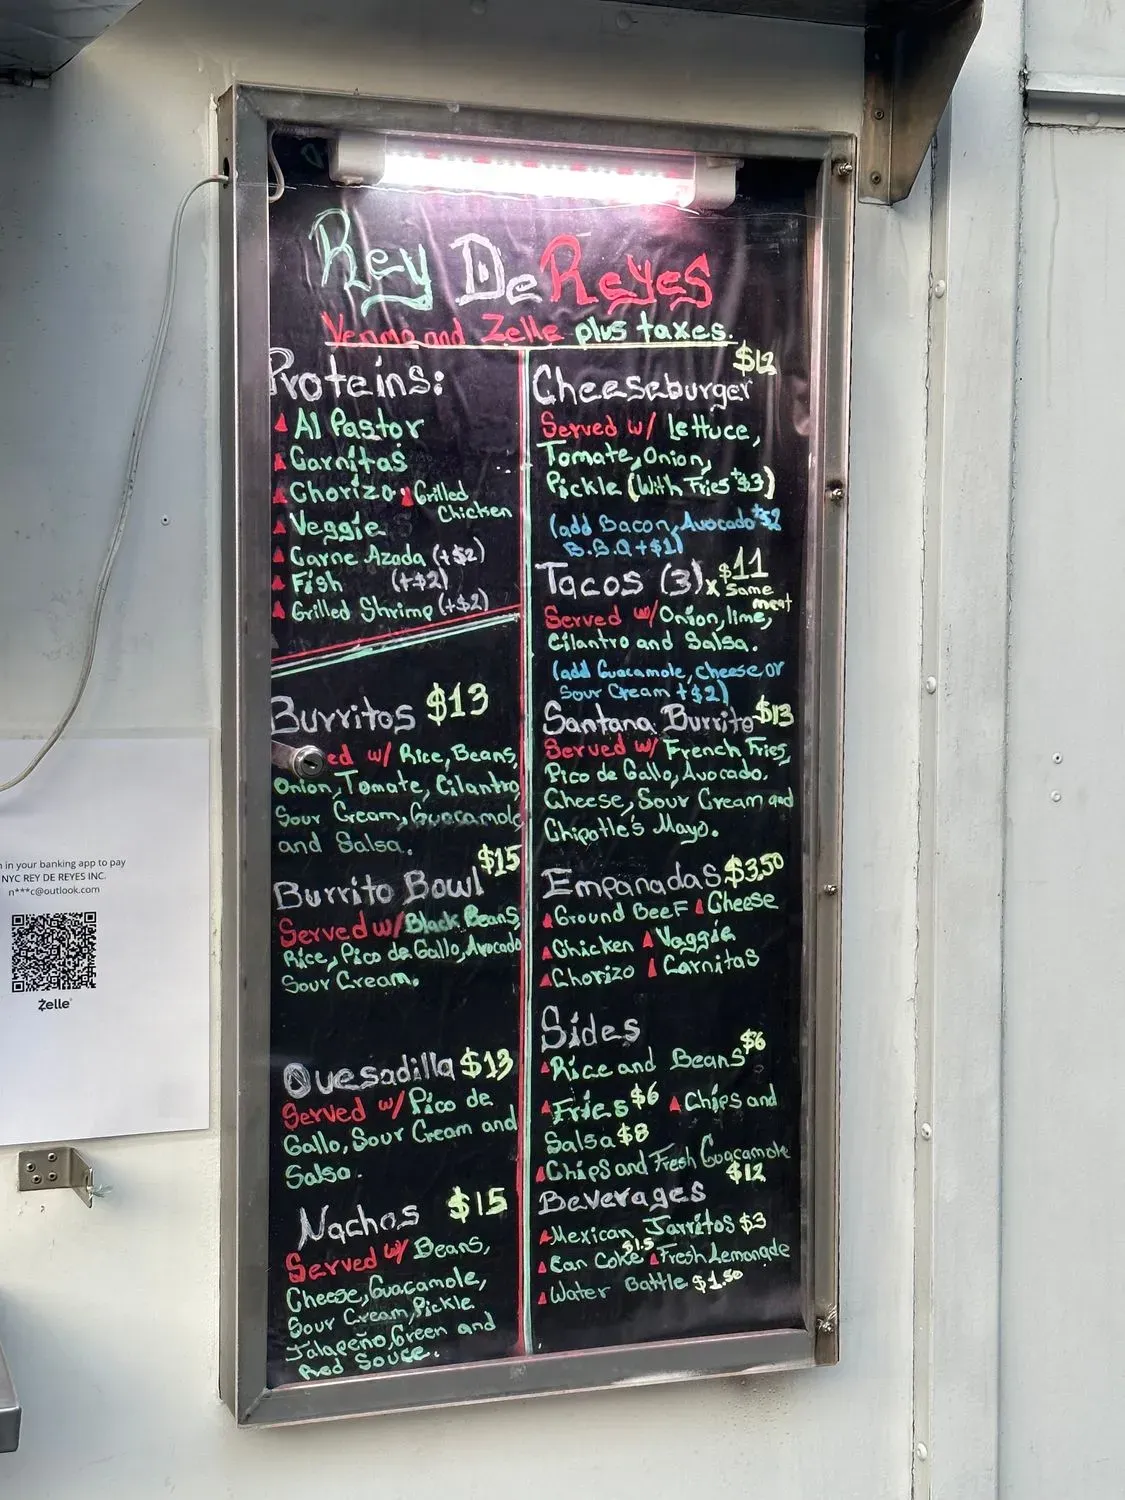 Rey De Reyes
Venmo and Zelle plus taxes.
Proteins:
Al Pastor
Carnitas
Chorizo Grilled
Chicken
Veggie
Carne Azada (+$2)
Fish (+$2)
Grilled Shrimp (+$2)
Burritos $13
ed w/ Rice, Beans,
Onion, Tomate, Cilantro
Sour Cream, Guacamole
and Salsa.
Burrito Bowl $15
Served w/ Black Beans,
Rice, Pico de Gallo, Avocado
Sour Cream.
Quesadilla $13
Served w/ Pico de
Gallo, Sour Cream and
Salsa.
Nachos $15
Served w/ Beans,
Cheese, Guacamole,
Sour Cream, Pickle
Jalapeño, Green and
Red Souce.
Cheeseburger $12
Served w/ lettuce,
Tomate, Onion,
Pickle (With Fries +$3)
(add Bacon, Avocado +$2
B.B.Q +$1)
Tacos (3) x $11
Same
meat
Served w/ Onion, lime,
Cilantro and Salsa.
(add Guacamole, cheese or
Sour Cream +$2)
Santana Burrito $13
Served w/ French Fries,
Pico de Gallo, Avocado,
Cheese, Sour Cream and
Chipotle's Mayo.
Empanadas $3,50
Ground Beef Cheese
Chicken Veggie
Chorizo Carnitas
Sides
Rice and Beans $6
Fries $6 Chips and
Salsa $8
Chips and Fresh Guacamole
$12
Beverages
Mexican Jarritos $3
Can Coke $1.5 Fresh Lemonade
Water Bottle $1.50
n in your banking app to pay
NYC REY DE REYES INC.
n***c@outlook.com
Zelle